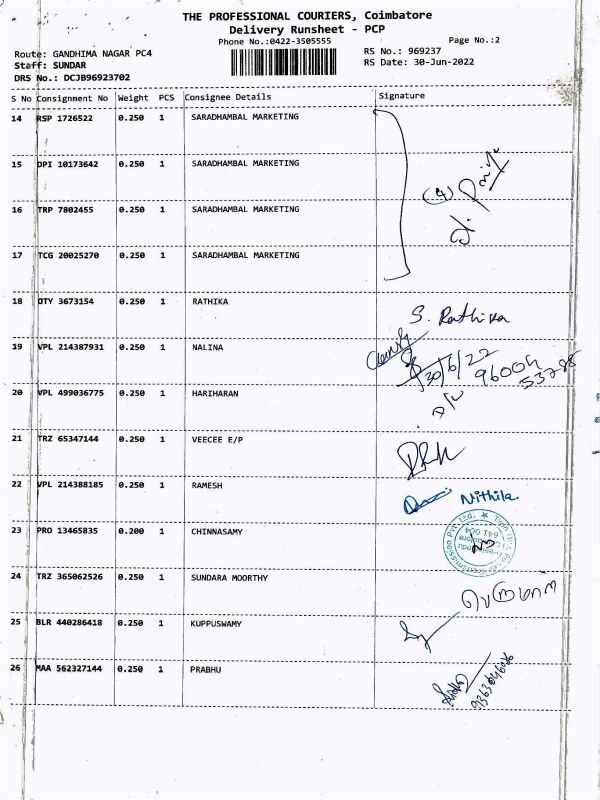 THE PROFESSIONAL COURIERS, Coimbatore
Delivery Runsheet - PCP
Phone No.:0422-3505555
Page No.:2
Route: GANDHIMA NAGAR PC4
RS No.: 969237
Staff: SUNDAR
RS Date: 30-Jun-2022
DRS No.: DCJB96923702
S No Consignment No Weight PCS Consignee Details Signature
14 RSP 1726522 0.250 1 SARADHAMBAL MARKETING
15 DPI 10173642 0.250 1 SARADHAMBAL MARKETING
(4)
16 TRP 7802455 0.250 1 SARADHAMBAL MARKETING
17 TCG 20025270 0.250 1 SARADHAMBAL MARKETING
18 OTY 3673154 0.250 1 RATHIKA
S. Rathika
19 VPL 214387931 0.250 1 NALINA
30/6/22
96004
53788
20 VPL 499036775 0.250 1 HARIHARAN
21 TRZ 65347144 0.250 1 VEECEE E/P
22 VPL 214388185 0.250 1 RAMESH
Nithila
23 PRO 13465835 0.200 1 CHINNASAMY
641 004
24 TRZ 365062526 0.250 1 SUNDARA MOORTHY
பெருமாள்
25 BLR 440286418 0.250 1 KUPPUSWAMY
26 MAA 562327144 0.250 1 PRABHU